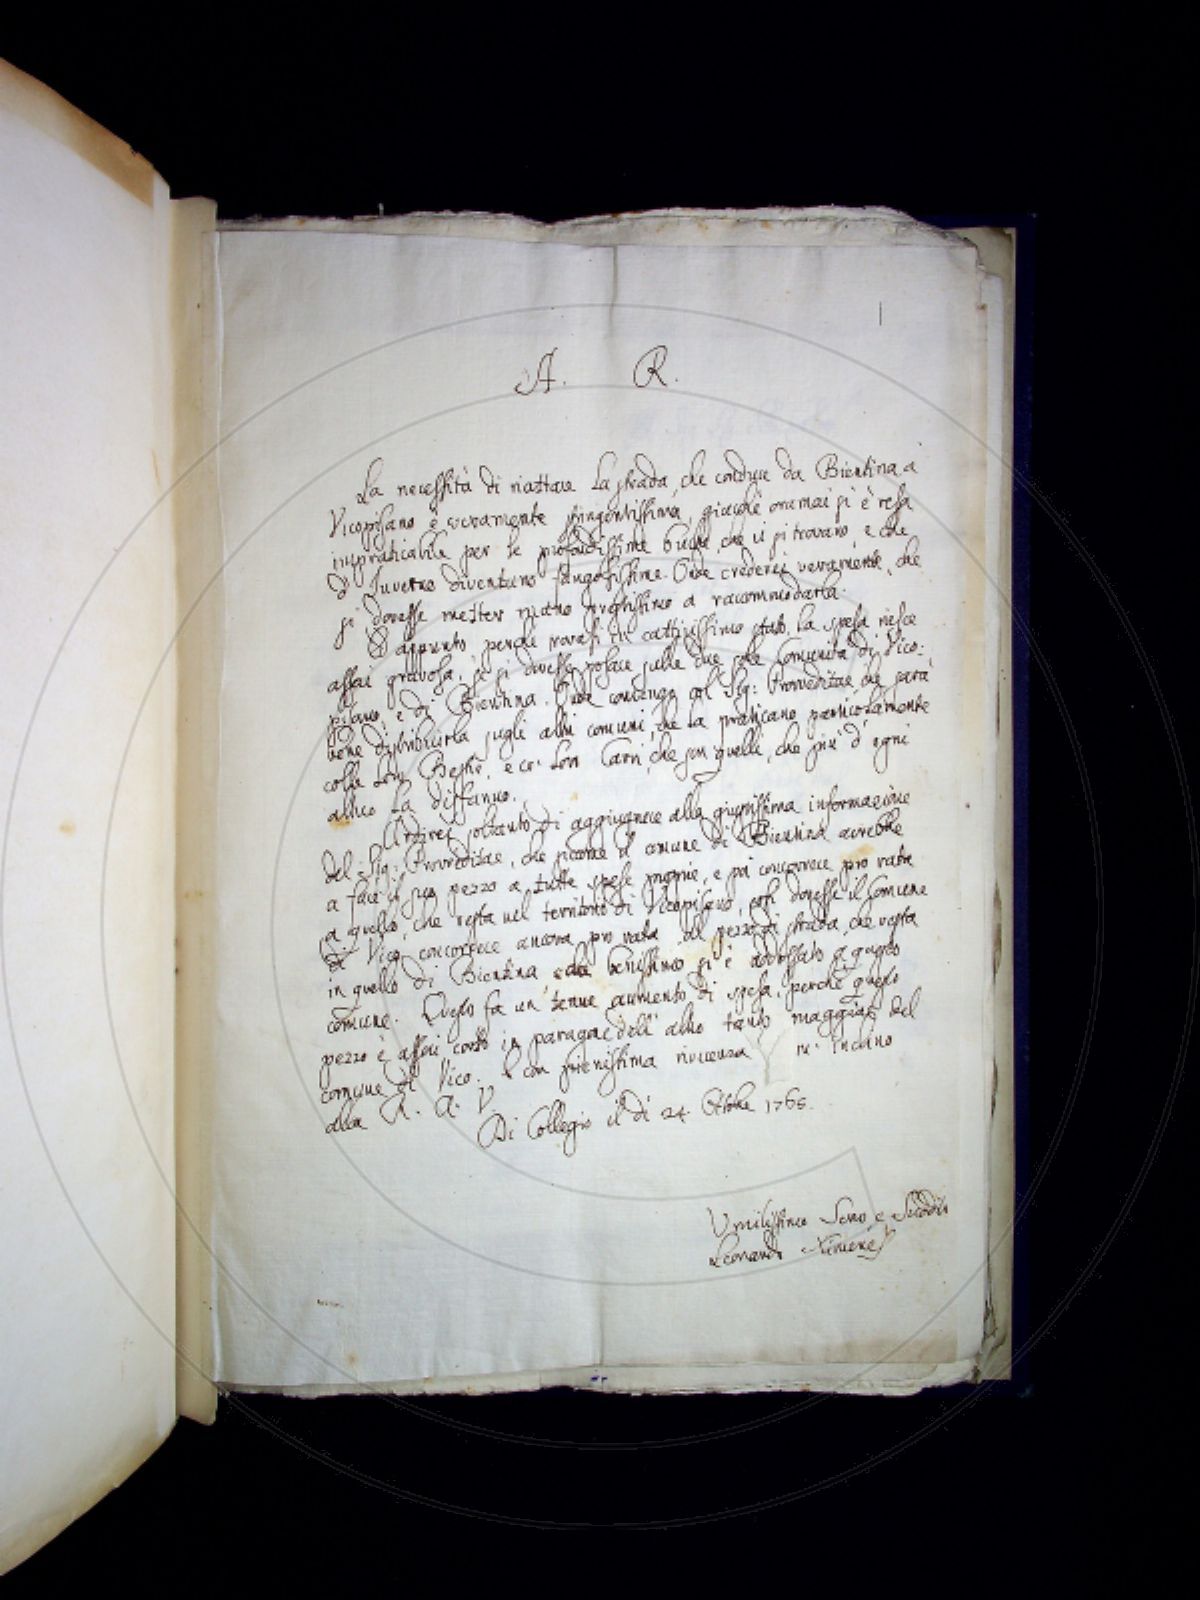 A. R.
La necessità di riattare la strada, che conduce da Bientina a
Vicopisano è veramente stringentissima, giacchè oramai si è resa
impraticabile per le profondissime buche, che ii si trovano, e che
d'Inverno diventano fangosissime. Onde crederei veramente, che
si dovesse metter mano prestissimo a raccommodarla.
E appunto perchè trovasi in cattivissimo stato, la spesa riesce
assai gravosa, se si dovesse posare sulle due sole Comunità di Vico:
pisano, e di Bientina. Onde convengo col Sig: Provveditore, che sarà
bene distribuirla sugli altri comuni, che la praticano particolarmente
colle loro Bestie, e co' loro Carri, che son quelli, che più d'ogni
altro la disfanno.
Ardirei soltanto di aggiugnere alla giustissima informazione
del Sig: Provveditore, che siccome il comune di Bientina avrebbe
a fare il suo pezzo a tutte spese proprie, e poi concorrere pro rata
a quello, che resta nel territorio di Vicopisano, così dovesse il Comune
di Vico concorrere ancora pro rata al pezzo di strada, che resta
in quello di Bientina e che benissimo si è addossato a questo
comune. Questo fa un tenue aumento di spesa, perchè questo
pezzo è assai corto in paragone dell'altro tanto maggiore del
comune di Vico. E con pienissima riverenza m'inchino
alla R. A. V.
Di Collegio il dì 24 Ottobre 1765.
Umilissimo Servo e Suddito
Leonardo Ximenes